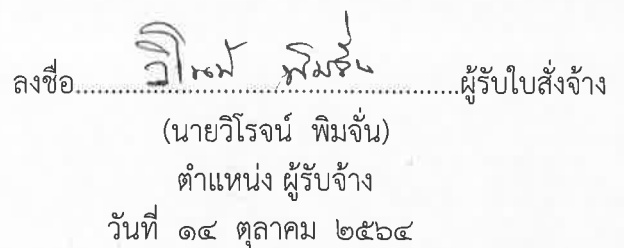 ลงชื่อ วิโรจน์ พิมจั่น ผู้รับใบสั่งจ้าง
(นายวิโรจน์ พิมจั่น)
ตำแหน่ง ผู้รับจ้าง
วันที่ ๑๔ ตุลาคม ๒๕๖๔